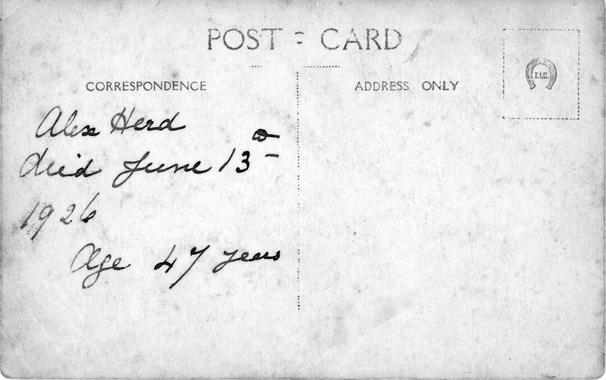 POST CARD
CORRESPONDENCE
ADDRESS ONLY
T.I.C.
Alex Herd
died June 13
1926
Age 47 years